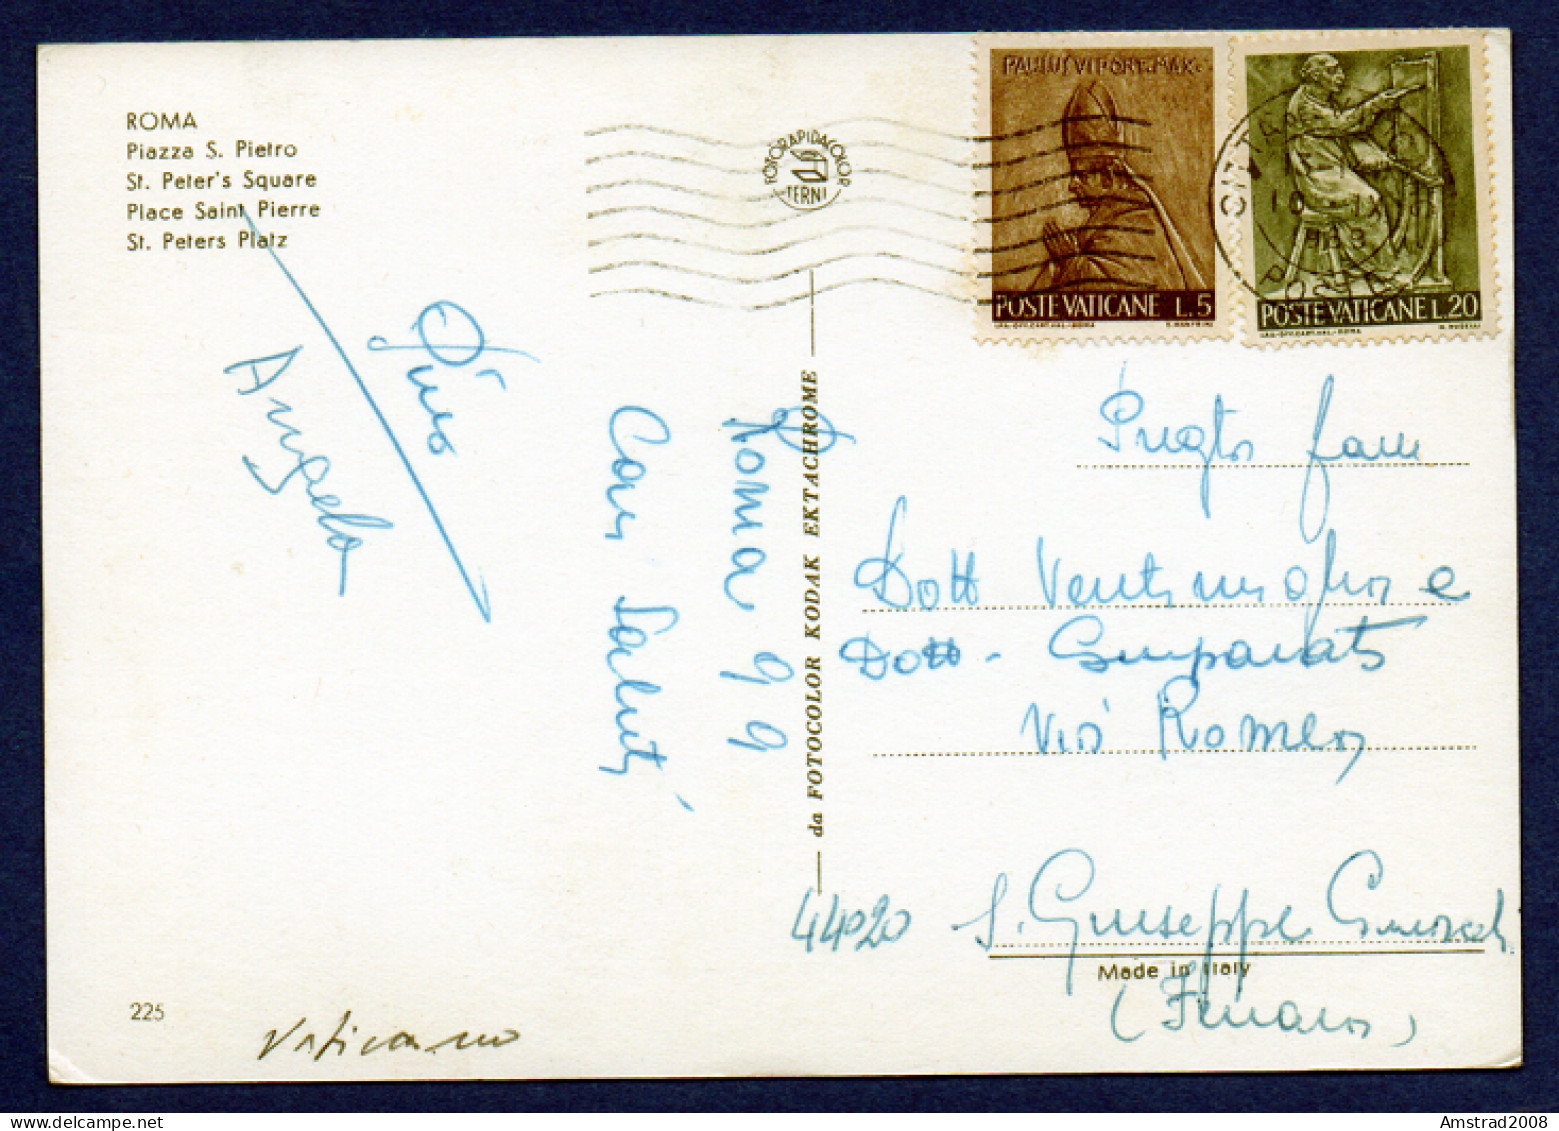 ROMA
Piazza S. Pietro
St. Peter's Square
Place Saint Pierre
St. Peters Platz
FOTORAPIDACOLOR
TERNI
PAULUS VI PONT. MAX.
POSTE VATICANE L.5
POSTE VATICANE L.20
CITTA
Roma 9 9
Cari Saluti
Angela
da FOTOCOLOR KODAK EKTACHROME
fam
Dott Ventimiglia e
Dott.
Via Romea
44020 S. Giuseppe
(Ferrara)
Made in Italy
225
Vaticano
Amstrad2008